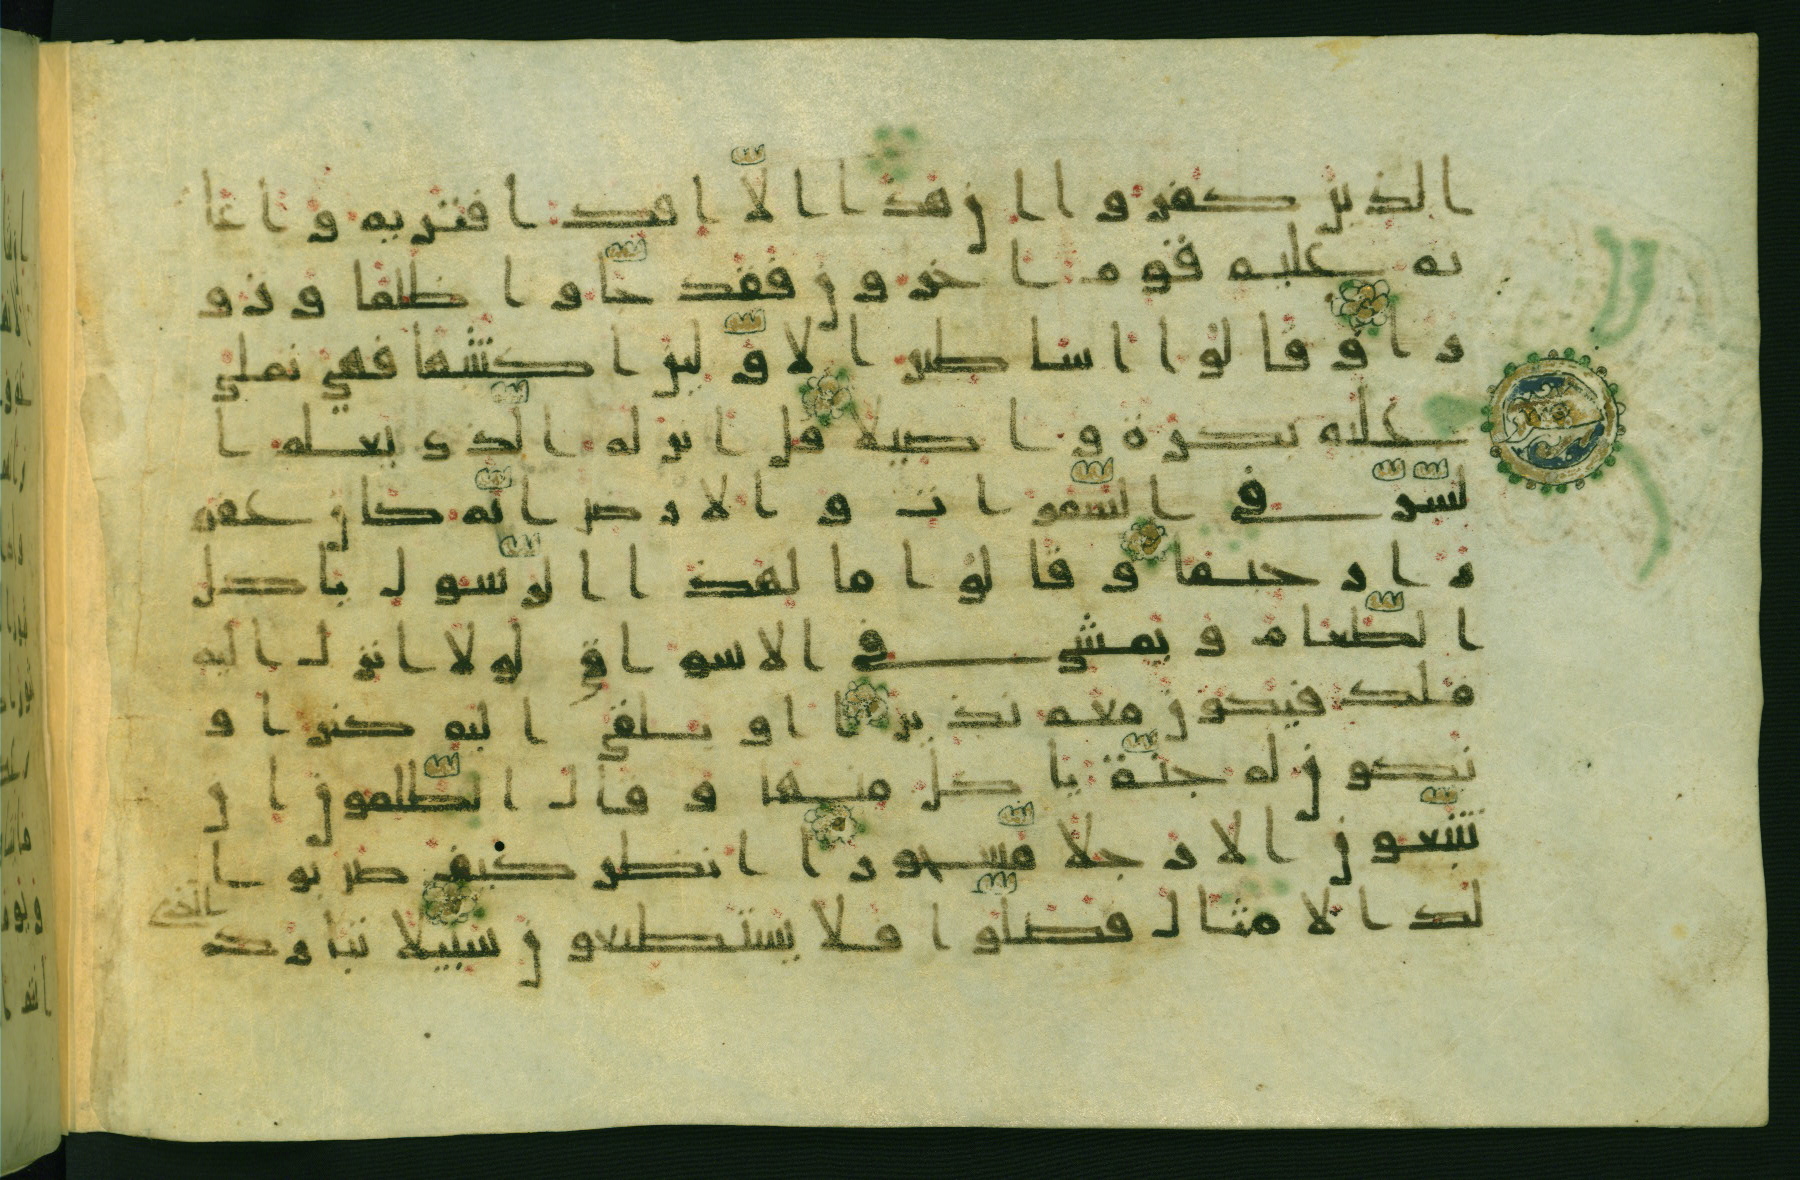 الذين كفروا ان هذا الّا افك افتريه واعا
نه عليه قوم اخرون فقد جّاو ا ظلما وزو
را وقالوا اساطير الاوّلين اكتتبها فهي تملى
عليه بكرة واصيلا قل انزله الّذى يعلم ا
لسّرّ في السّموات والارض انّه كان غفو
را رحيما وقالوا مال هذا الرّسول ياكل
الطّعام ويمشي في الاسواق لولا انزل اليه
ملك فيكون معه نذيرا او يلقى اليه كنز او
تكون له جنّة ياكل منها وقال الظّلمون ان
تتّبعون الا رجلا مّسحورا انظر كيف ضربوا
لك الامثال فضلّوا فلا يستطيعون سبيلا تبارك
الذي